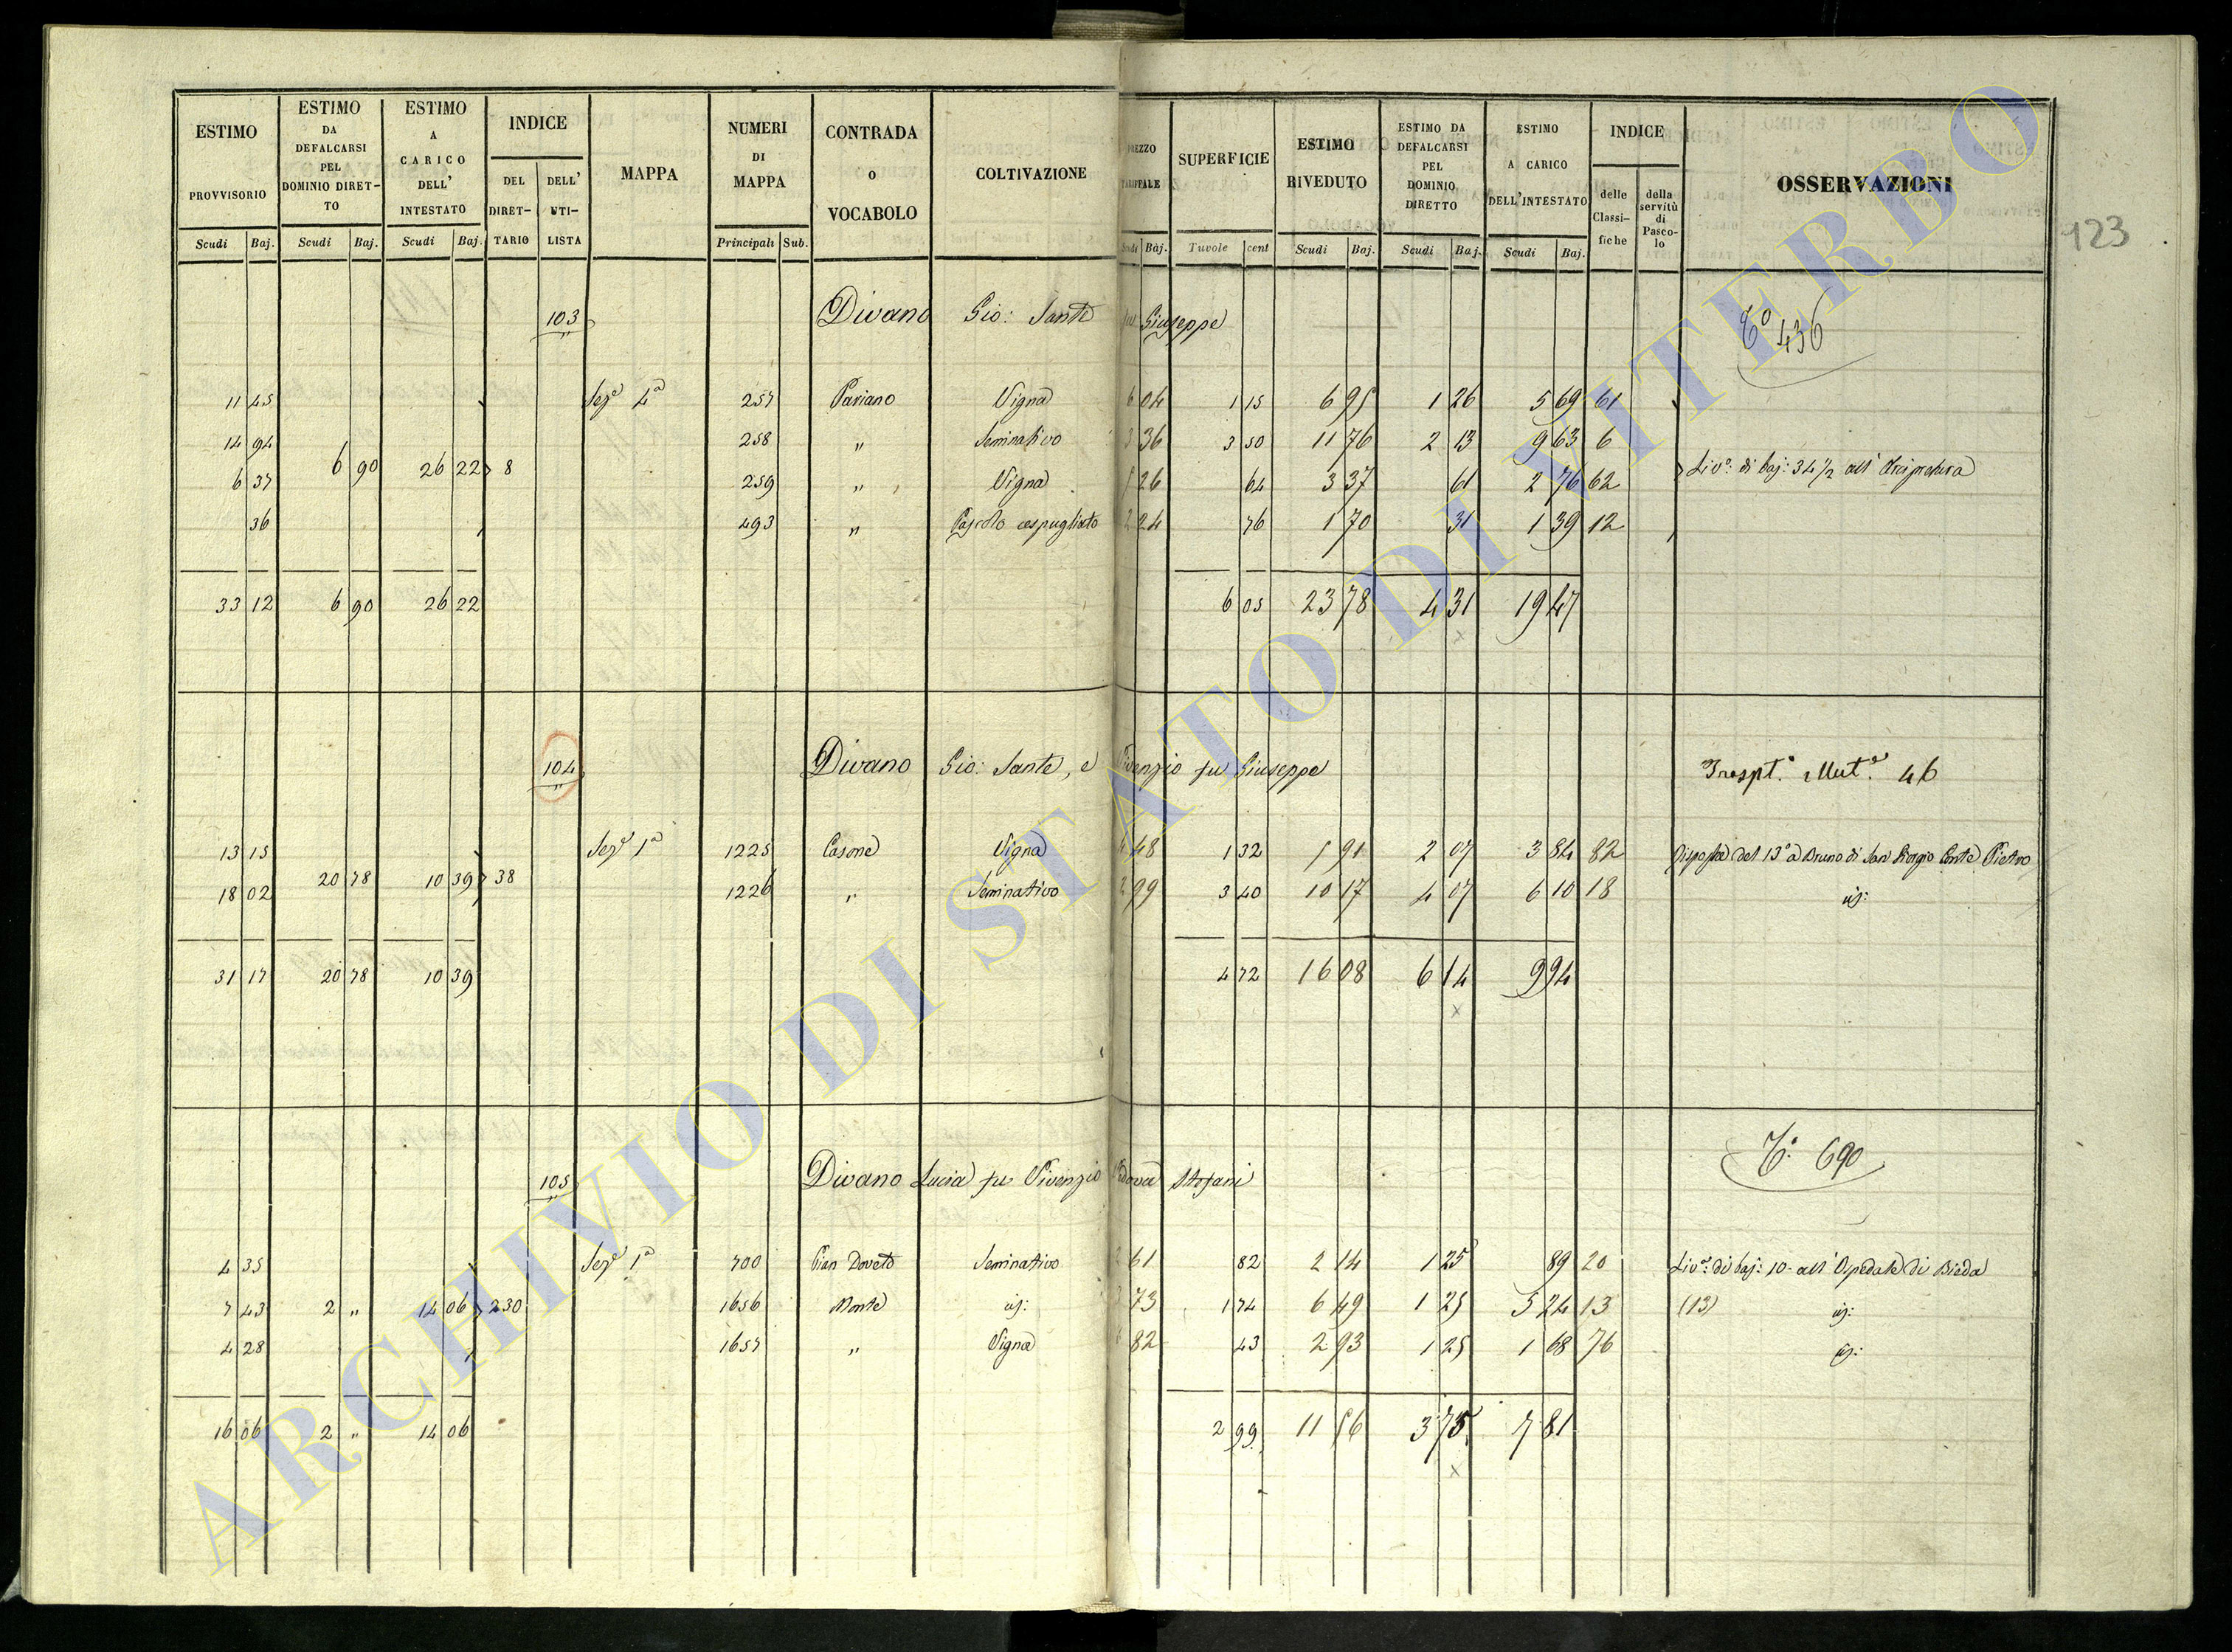 ESTIMO PROVVISORIO Scudi Baj.
ESTIMO DA DEFALCARSI PEL DOMINIO DIRET- TO Scudi Baj.
ESTIMO A CARICO DELL' INTESTATO Scudi Baj.
INDICE DEL DIRET- TARIO DELL' UTI- LISTA
MAPPA
NUMERI DI MAPPA Principali Sub.
CONTRADA O VOCABOLO
COLTIVAZIONE
PREZZO TARIFFALE Scudi Baj.
SUPERFICIE Tavole cent
ESTIMO RIVEDUTO Scudi Baj.
ESTIMO DA DEFALCARSI PEL DOMINIO DIRETTO Scudi Baj.
ESTIMO A CARICO DELL'INTESTATO Scudi Baj.
INDICE delle Classi- fiche della servitù di Pasco- lo
OSSERVAZIONI
123
103 Divano Gio: Sante fu Giuseppe Tº 436
11 45 Sezᵉ 4ᵃ 257 Pariano Vigna 6 04 1 15 6 95 1 26 5 69 61
14 94 258 " Seminativo 3 36 3 50 11 76 2 13 9 63 6
6 90 26 22 8 Livº: di baj: 34 1/2 all' Arcipretura
6 37 259 " Vigna 5 26 64 3 37 61 2 76 62
36 493 " Pascolo cespugliato 2 24 76 1 70 31 1 39 12
33 12 6 90 26 22 6 05 23 78 4 31 19 47
104 Divano Gio: Sante, e Vivenzio fu Giuseppe Traspt.º Mut.ª 46
13 15 Sezᵉ 1ᵃ 1225 Casone Vigna 48 1 32 5 91 2 07 3 84 82 Risposta del 13º a Bruno di San Giorgio Conte Pietro
20 78 10 39 38
18 02 1226 " Seminativo 2 99 3 40 10 17 4 07 6 10 18 id:
31 17 20 78 10 39 4 72 16 08 6 14 9 94
105 Divano Lucia fu Vivenzio Vedova Stefani Tº 690
4 35 Sezᵉ 1ᵃ 700 Pian Doveto Seminativo 2 61 82 2 14 1 25 89 20 Livº: di baj: 10 all' Ospedale di Bieda
7 43 2 " 14 06 230 1656 Monte id: 73 1 74 6 49 1 25 5 24 13 (13) id:
4 28 1657 " Vigna 6 82 43 2 93 1 25 1 68 76 id:
16 06 2 " 14 06 2 99 11 56 3 75 7 81
ARCHIVIO DI STATO DI VITERBO